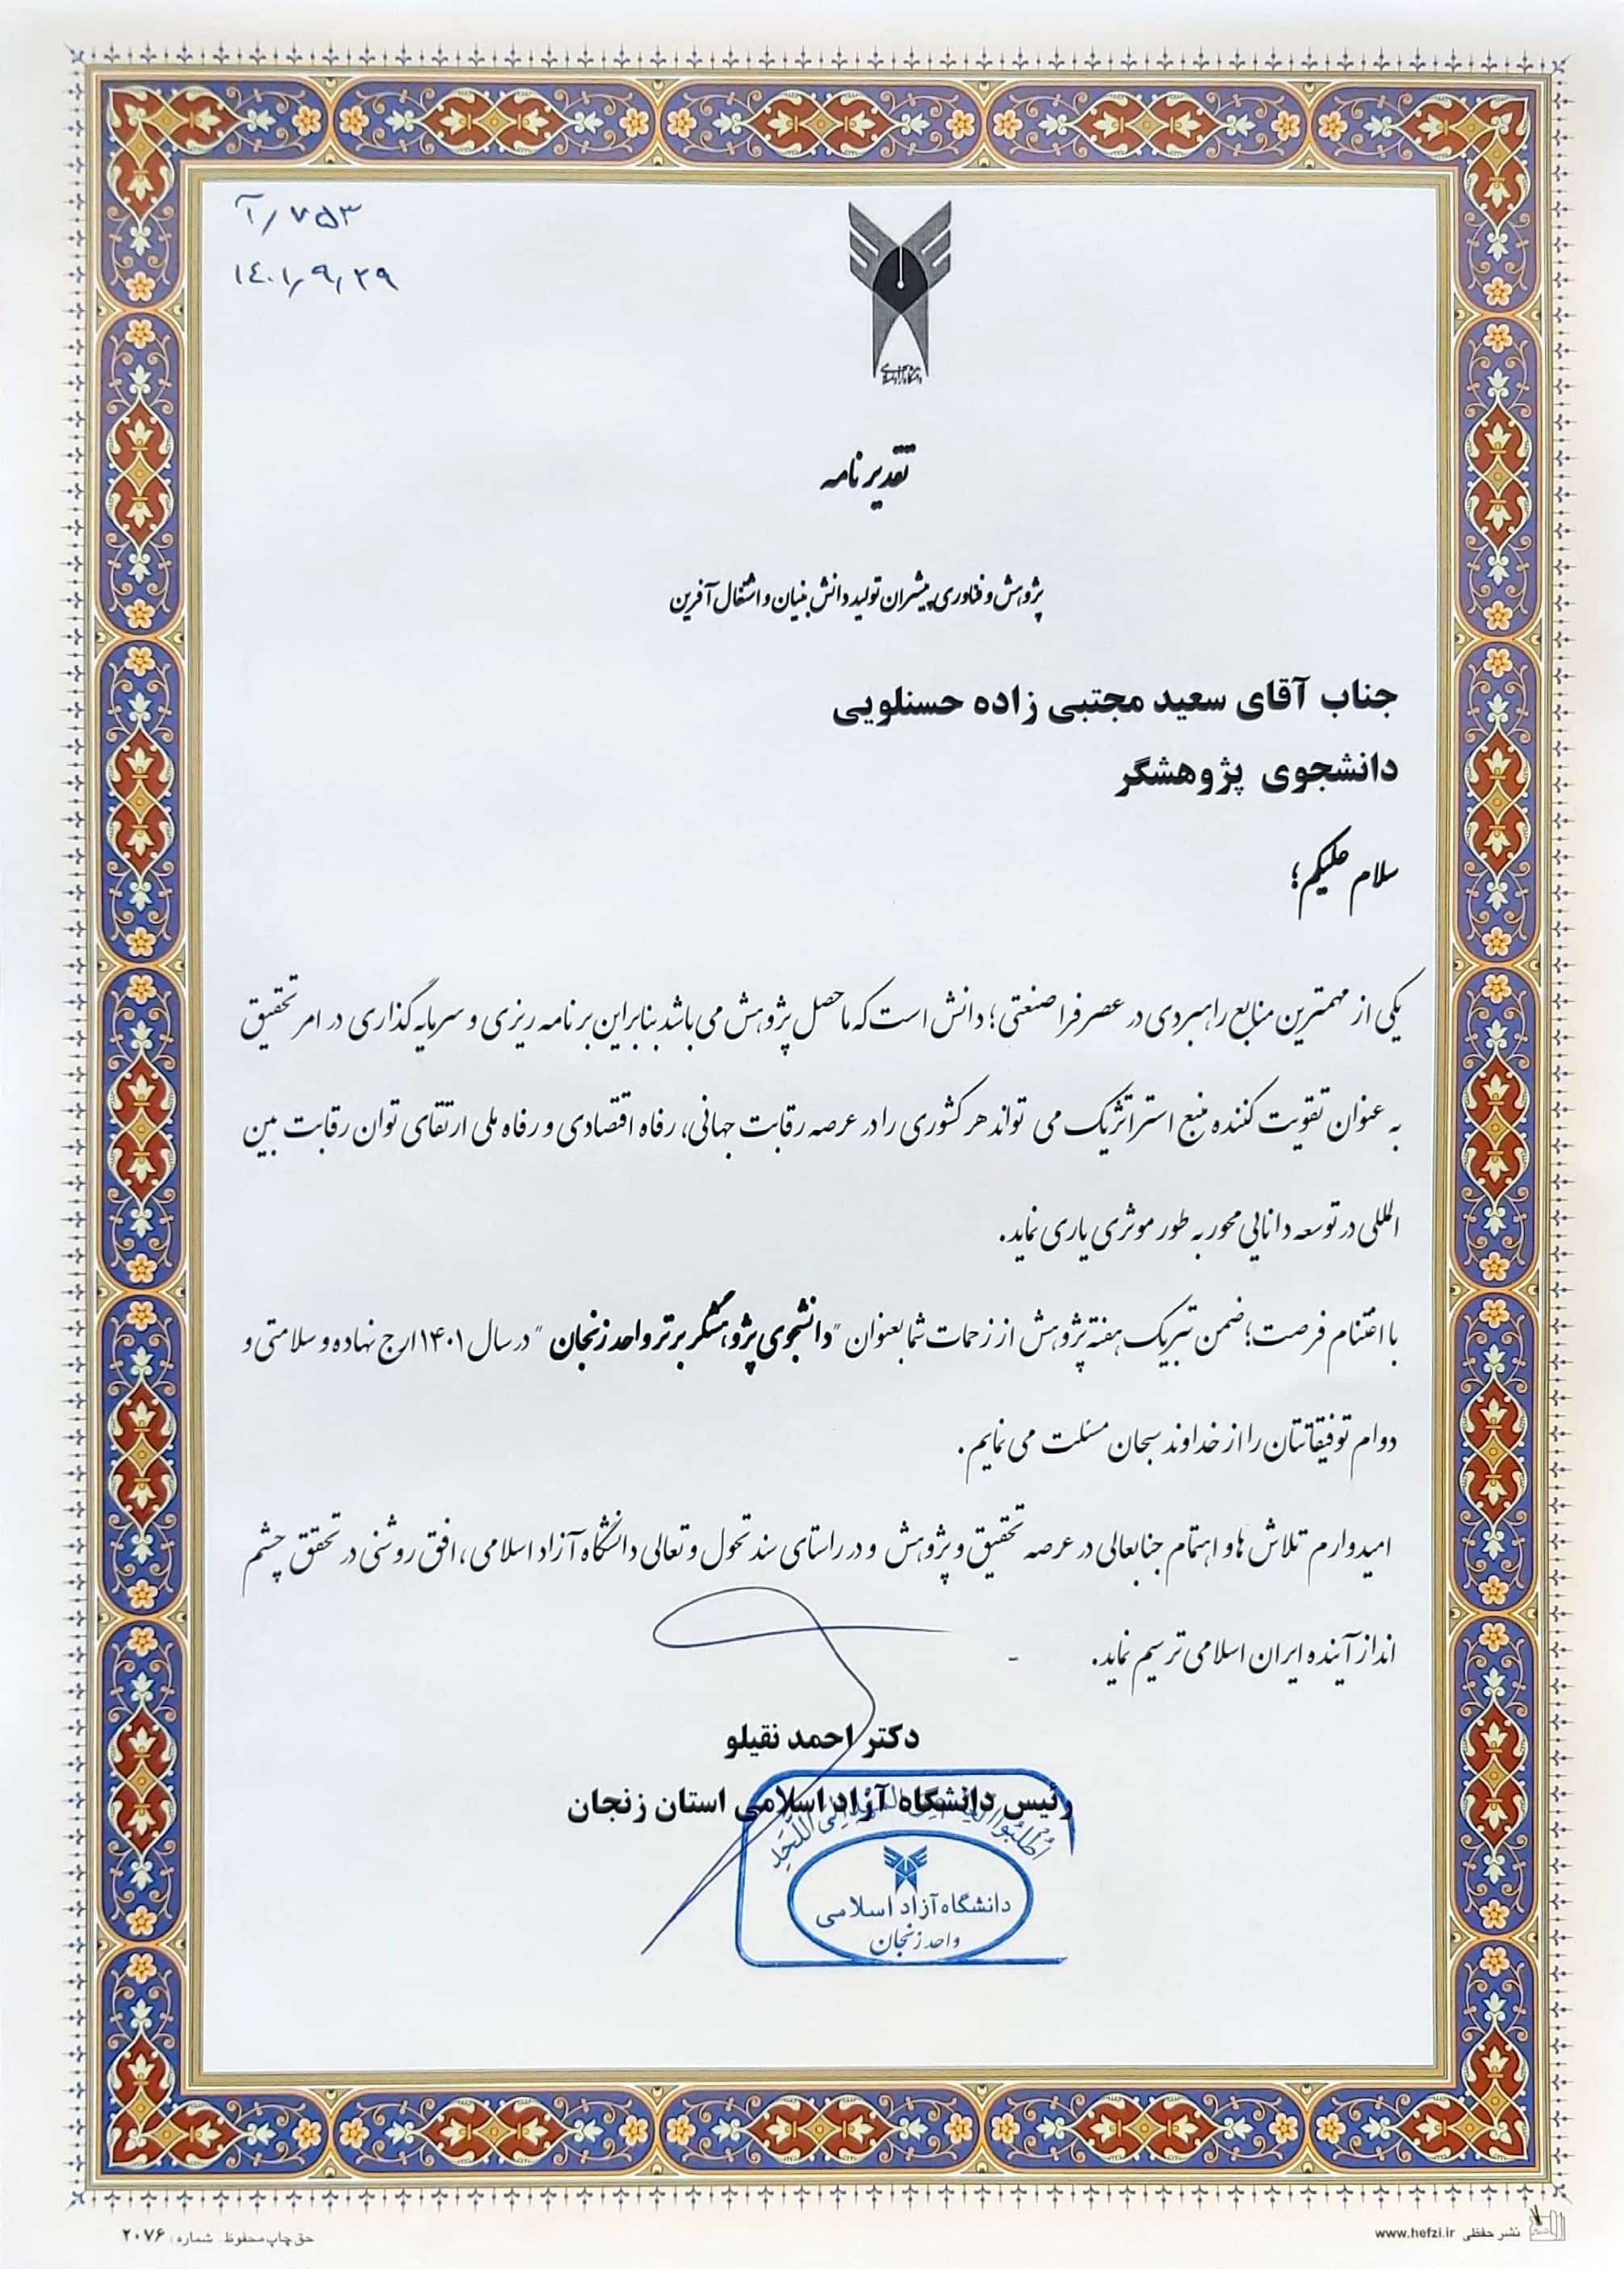 آ/۷۵۳
۱۴۰۱/۹/۲۹
تقدیر نامه
پژوهش و فناوری پیشران تولید دانش بنیان و اشتغال آفرین
جناب آقای سعید مجتبی زاده حسنلویی
دانشجوی پژوهشگر
سلام علیکم؛
یکی از مهمترین منابع راهبردی در عصر فرا صنعتی؛ دانش است که ماحصل پژوهش می باشد بنابراین برنامه ریزی و سرمایه گذاری در امر تحقیق
به عنوان تقویت کننده منبع استراتژیک می تواند هر کشوری را در عرصه رقابت جهانی، رفاه اقتصادی و رفاه ملی ارتقای توان رقابت بین
المللی در توسعه دانایی محور به طور موثری یاری نماید.
با اغتنام فرصت؛ ضمن تبریک هفته پژوهش از زحمات شما بعنوان "دانشجوی پژوهشگر برتر واحد زنجان" در سال ۱۴۰۱ ارج نهاده و سلامتی و
دوام توفیقاتتان را از خداوند سبحان مسئلت می نمایم.
امیدوارم تلاش ها و اهتمام جنابعالی در عرصه تحقیق و پژوهش و در راستای سند تحول و تعالی دانشگاه آزاد اسلامی، افق روشنی در تحقق چشم
انداز آینده ایران اسلامی ترسیم نماید.
دکتر احمد نقیلو
رئیس دانشگاه آزاد اسلامی استان زنجان
دانشگاه آزاد اسلامی
واحد زنجان
نشر حفظی www.hefzi.ir
حق چاپ محفوظ. شماره: ۲۰۷۶